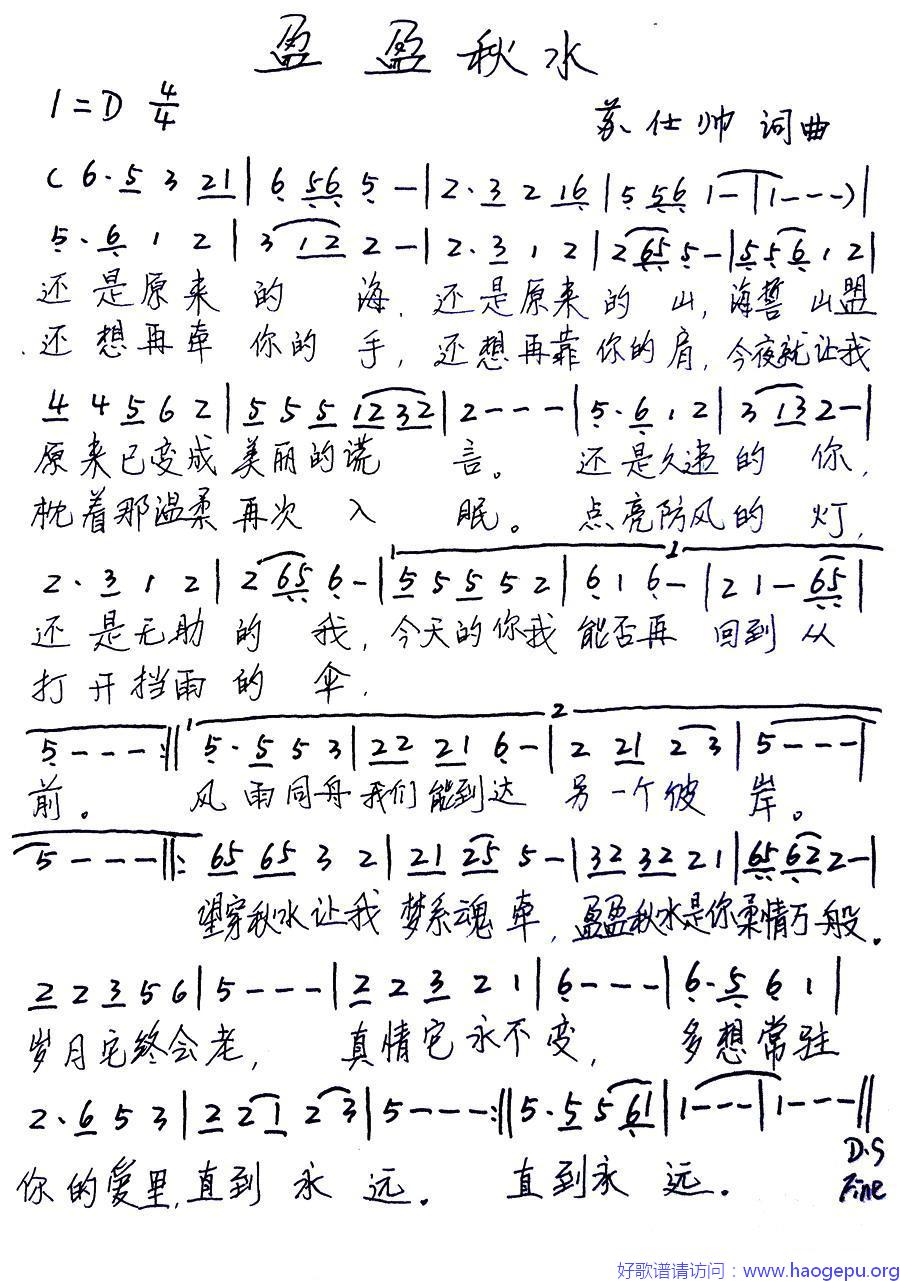 盈盈秋水
1=D 4/4
苏仕帅 词曲
( 6· 5 3 21 | 6 56 5 — | 2· 3 2 16 | 5 56 1— | 1--- ) |
5· 6 1 2 | 3 12 2 — | 2· 3 1 2 | 2 65 5 — | 5 5 6 1 2 |
还是原来的 海, 还是原来的山, 海誓山盟
还想再牵你的手, 还想再靠你的肩, 今夜就让我
4 4 5 6 2 | 5 5 5 1232 | 2 - - - | 5· 6 1 2 | 3 13 2 — |
原来已变成美丽的谎 言。 还是久违的 你,
枕着那温柔再次 入 眠。 点亮防风的 灯,
2· 3 1 2 | 2 65 6 — | 5 5 5 5 2 | 6 1 6 — | 2 1 — 65 |
还是无助的 我, 今天的你我能否再 回到从
打开挡雨的 伞,
5 - - - :‖ 5· 5 5 3 | 22 21 6 — | 2 21 2 3 | 5 - - - |
前。 风雨同舟我们能到达 另一个彼 岸。
5 - - - ‖: 65 65 3 2 | 21 25 5 — | 32 32 2 1 | 65 62 2 — |
望穿秋水让我 梦系魂牵, 盈盈秋水是你柔情万般。
2 2 3 5 6 | 5 - - - | 2 2 3 2 1 | 6 - - - | 6· 5 6 1 |
岁月它终会老, 真情它永不变, 多想常驻
2· 6 5 3 | 2 2 1 2 3 | 5 - - - :‖ 5· 5 5 61 | 1 - - - | 1 - - - ‖
D.S
你的爱里,直到 永 远。 直到永 远。
Fine
好歌谱请访问：www.haogepu.org